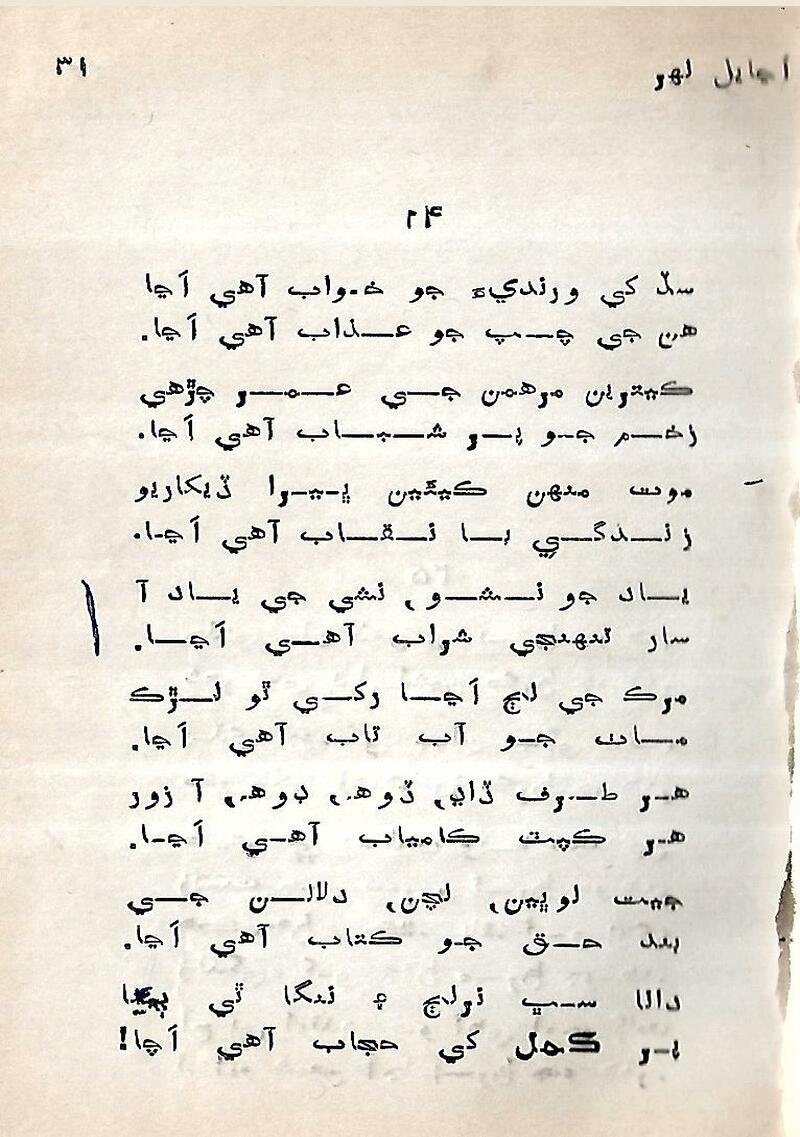 اڃايل لهر
٣١
۲۴
سڏ کي ورنديءَ جو خواب آهي اَڃا
هن جي چپ جو عذاب آهي اَڃا.
ڪيترين مرهمن جي عمر چڙهي
زخم جو پر شباب آهي اَڃا.
موت منهن ڪيئين ڀيرا ڏيکاريو
زندگي با نقاب آهي اَڃا.
ياد جو نشو، نشي جي ياد آ
سار تنهنجي شراب آهي اَڃا.
مرڪ جي لڄ اَڃا رکي ٿو لڙڪ
مات جو آب تاب آهي اَڃا.
هر طرف ڏاڍ، ڏوهه، ڊوهه، آ زور
هر ڪپت ڪامياب آهي اَڃا.
جيت لوڀين، لچن، دلالن جي
بند حق جو ڪتاب آهي اَڃا.
دانا سڀ نرلڄ ۽ ننگا ٿي
پر کي حجاب آهي اَڃا!